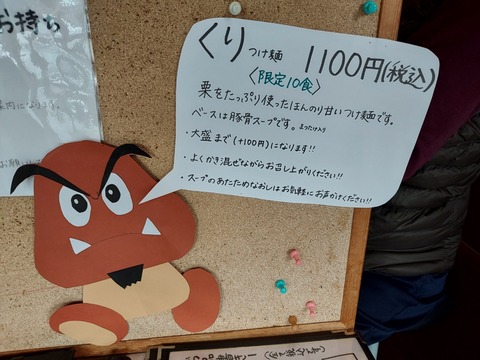 お持ち
くり つけ麺 1100円(税込)
〈限定10食〉
栗をたっぷり使ったほんのり甘いつけ麺です。
ベースは豚骨スープです。まつたけ入り
・大盛まで(+100円)になります!!
・よくかき混ぜながらお召し上がりください!!
・スープのあたためなおしはお気軽にお声がけください!!
になります。